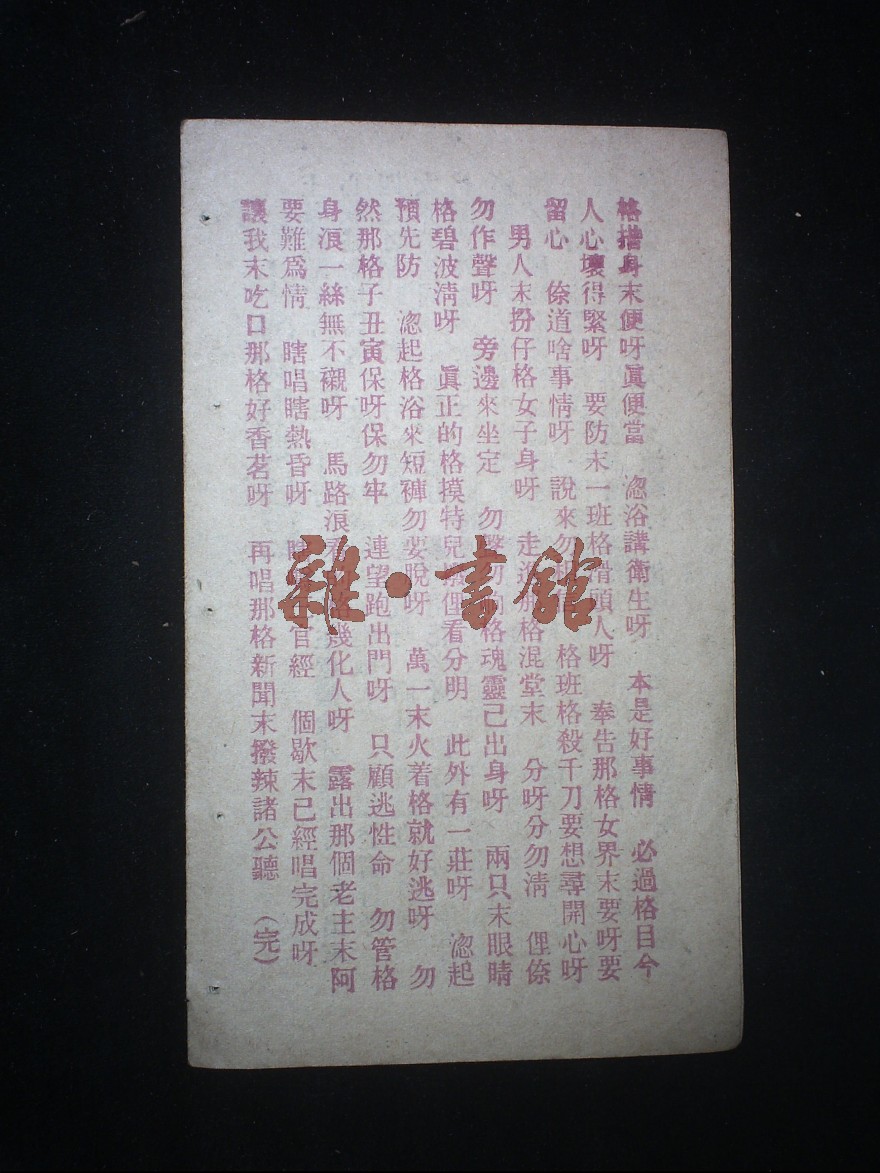 格揩身末便呀眞便當　淴浴講衛生呀　本是好事情　必過格目今
人心壞得緊呀　要防末一班格滑頭人呀　奉告那格女界末要呀要
留心　倷道啥事情呀　說來勿　格班格殺千刀要想尋開心呀
男人末扮仔格女子身呀　走進那格混堂末　分呀分勿清　俚倷
勿作聲呀　旁邊來坐定　勿　勿　格魂靈已出身呀　兩只末眼睛
格碧波淸呀　眞正的格摸特兒　俚看分明　此外有一莊呀　淴起
預先防　淴起格浴來短褲勿要脫呀　萬一末火着格就好逃呀　勿
然那格子丑寅保呀保勿牢　連望跑出門呀　只顧逃性命　勿管格
身浪一絲無不襯呀　馬路浪看　幾化人呀　露出那個老主末阿
要難爲情　瞎唱瞎熱昏呀　官經　個歇末已經唱完成呀
讓我末吃口那格好香茗呀　再唱那格新聞末撥辣諸公聽　（完）
雜·書館